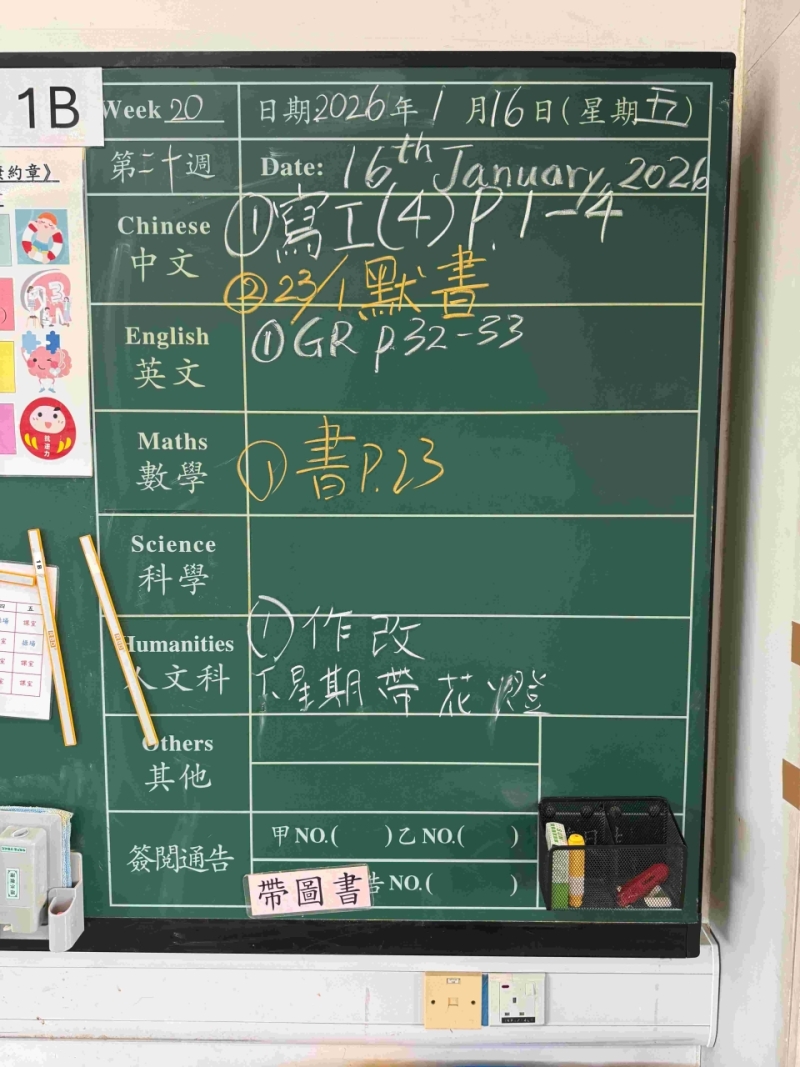 1B
Week 20
日期2026年1月16日(星期五)
第二十週
Date: 16th January, 2026
Chinese
中文
①寫工(4) P.1-4
②23/1默書
English
英文
①GR p.32-33
Maths
數學
①書P.23
Science
科學
Humanities
人文科
①作改
下星期帶花燈
Others
其他
簽閱通告
甲NO.( )乙NO.( )
告NO.( )
帶圖書
約章》
四 五
課室
課室
課室
課室